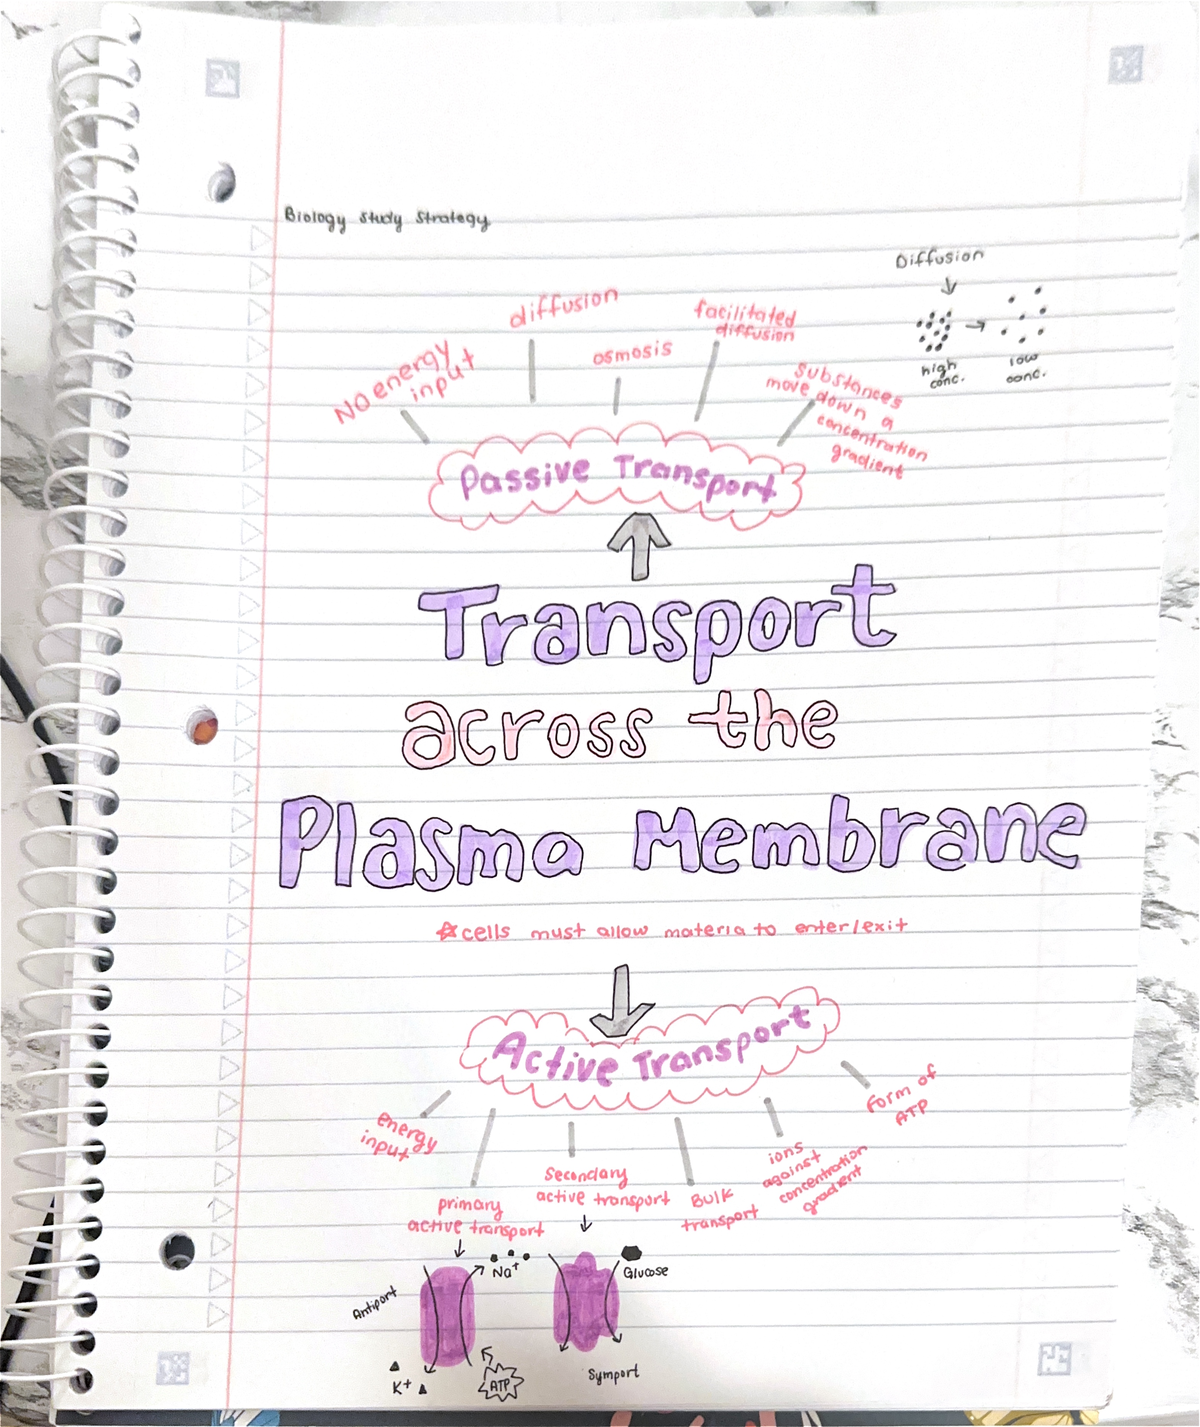 Biology Study Strategy
Diffusion
high
conc.
low
conc.
NO energy
input
diffusion
osmosis
facilitated
diffusion
substances
move down a
concentration
gradient
Passive Transport
Transport
across the
Plasma Membrane
☆cells must allow materia to enter/exit
Active Transport
energy
input
primary
active transport
Secondary
active transport
Bulk
transport
ions
against
concentration
gradient
form of
ATP
Antiport
Na+
K+
ATP
Glucose
Symport